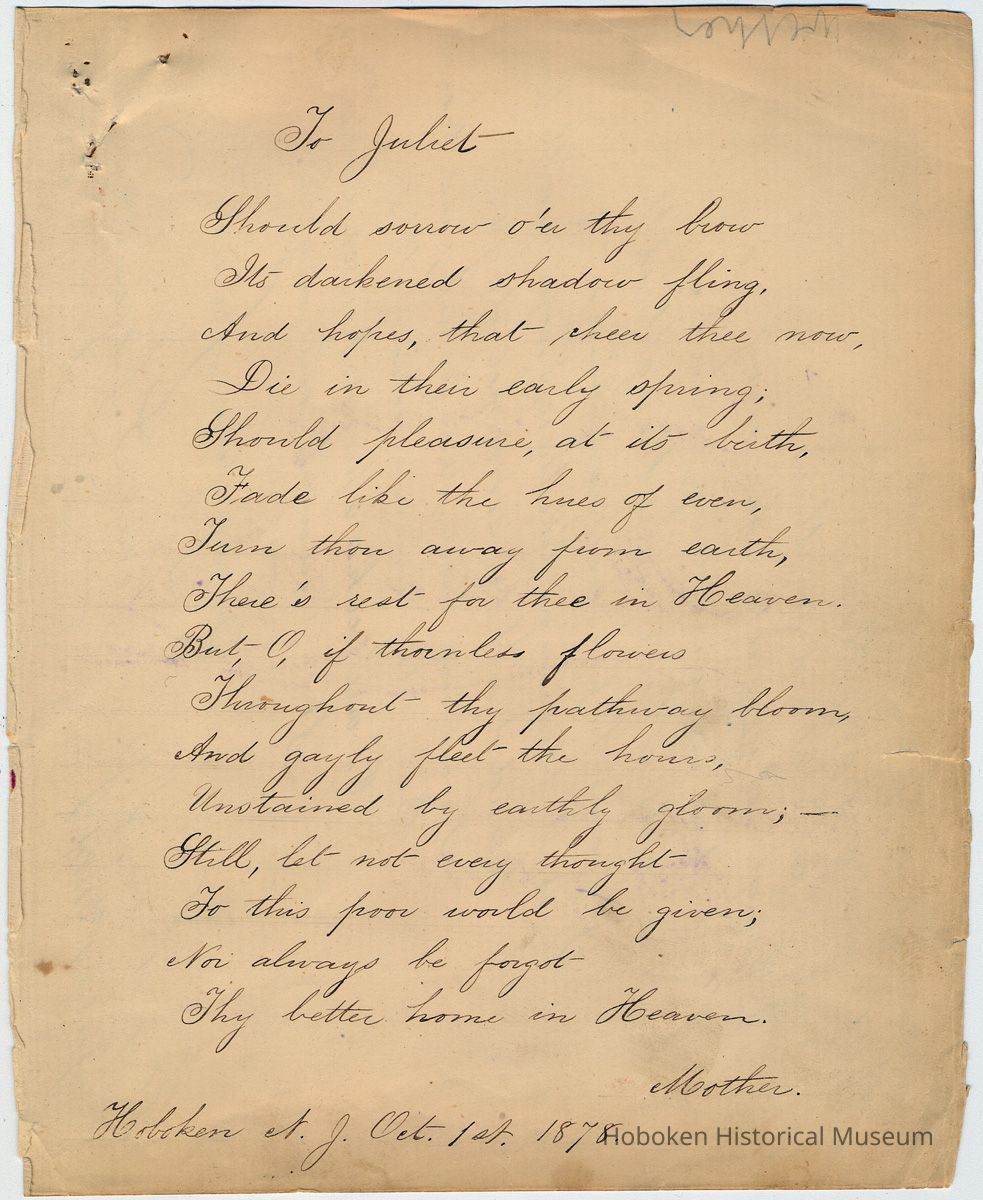 To Juliet
Should sorrow o'er thy brow
Its darkened shadow fling,
And hopes, that cheer thee now,
Die in their early spring;
Should pleasure, at its birth,
Fade like the hues of even,
Turn thou away from earth,
There's rest for thee in Heaven.
But, O, if thornless flowers
Throughout thy pathway bloom,
And gayly fleet the hours,
Unstained by earthly gloom; —
Still, let not every thought
To this poor world be given;
Nor always be forgot
Thy better home in Heaven.
Mother.
Hoboken N. J. Oct. 1st. 1878.
Hoboken Historical Museum